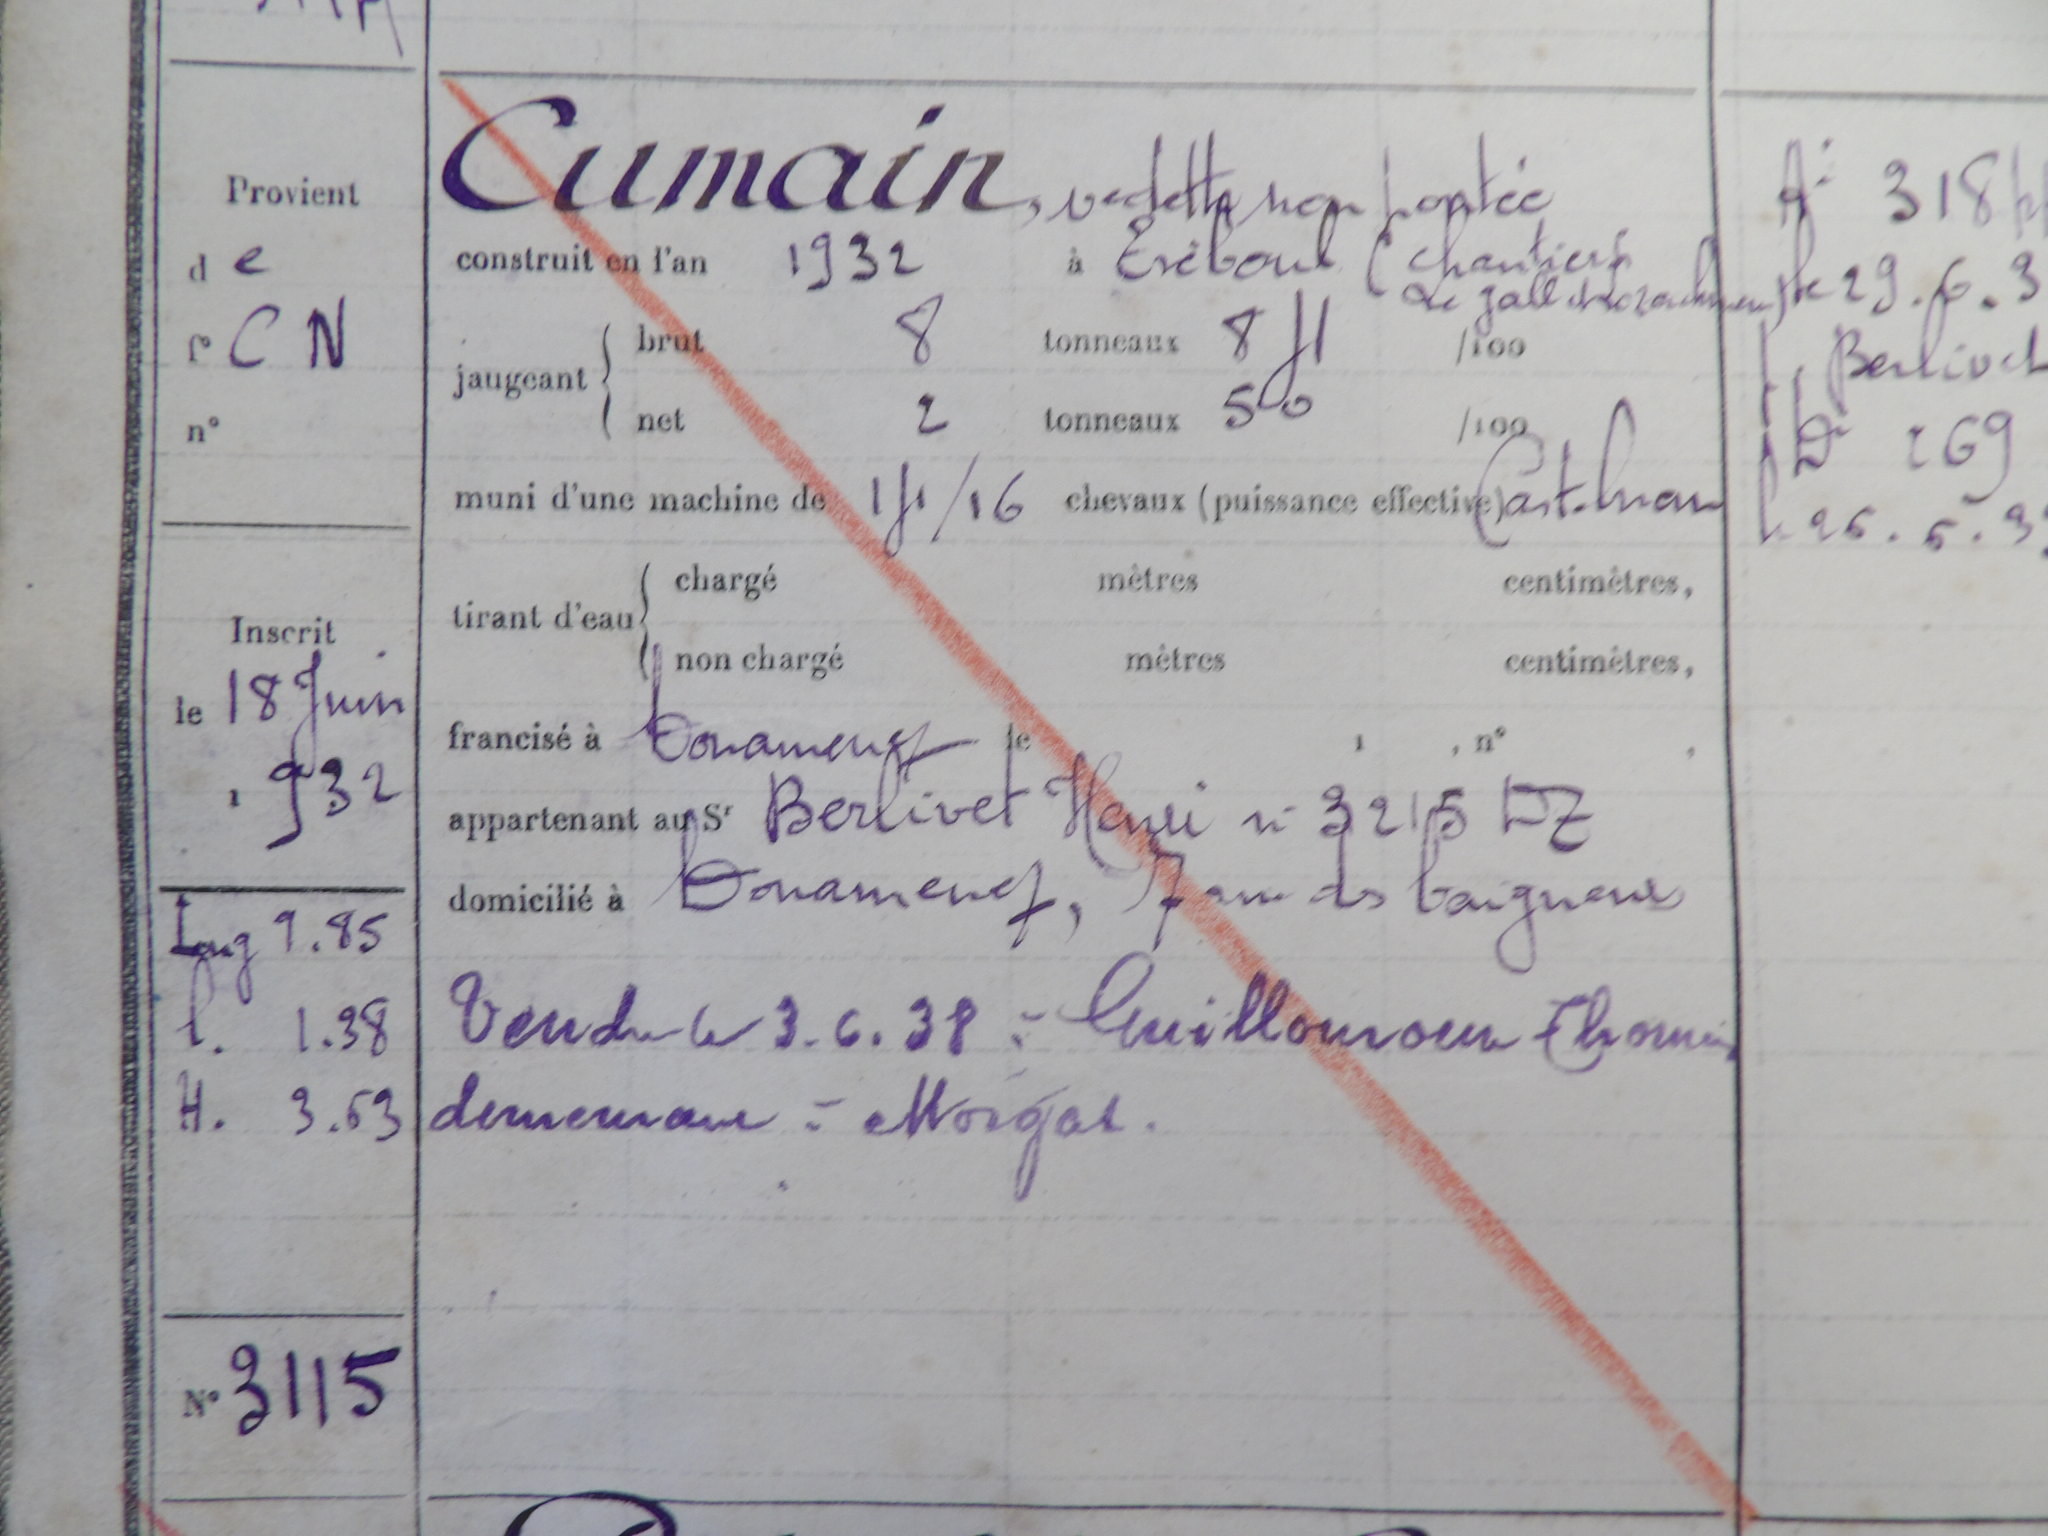 Provient
d e
f° C N
n°
Inscrit
le 18 Juin
1932
Long 9.85
l. 1.38
H. 3.53
N° 3115
Cumain, vedette non pontée
construit en l'an 1932 à Tréboul (chantiers
Le Gall et
jaugeant brut 8 tonneaux 84 /100
net 2 tonneaux 50 /100
muni d'une machine de 14/16 chevaux (puissance effective) Castelnau
tirant d'eau chargé mètres centimètres,
non chargé mètres centimètres,
francisé à Douarnenez le 1 , n° ,
appartenant au Sr Berlivet Henri n° 3215 DZ
domicilié à Douarnenez, 7 rue des baigneurs
Vendu le 3.6.38 à Guillouroux Thomas
demeurant à Morgat.
At 318
le 29.6.3
Berlivet
Dt 269
26.5.3